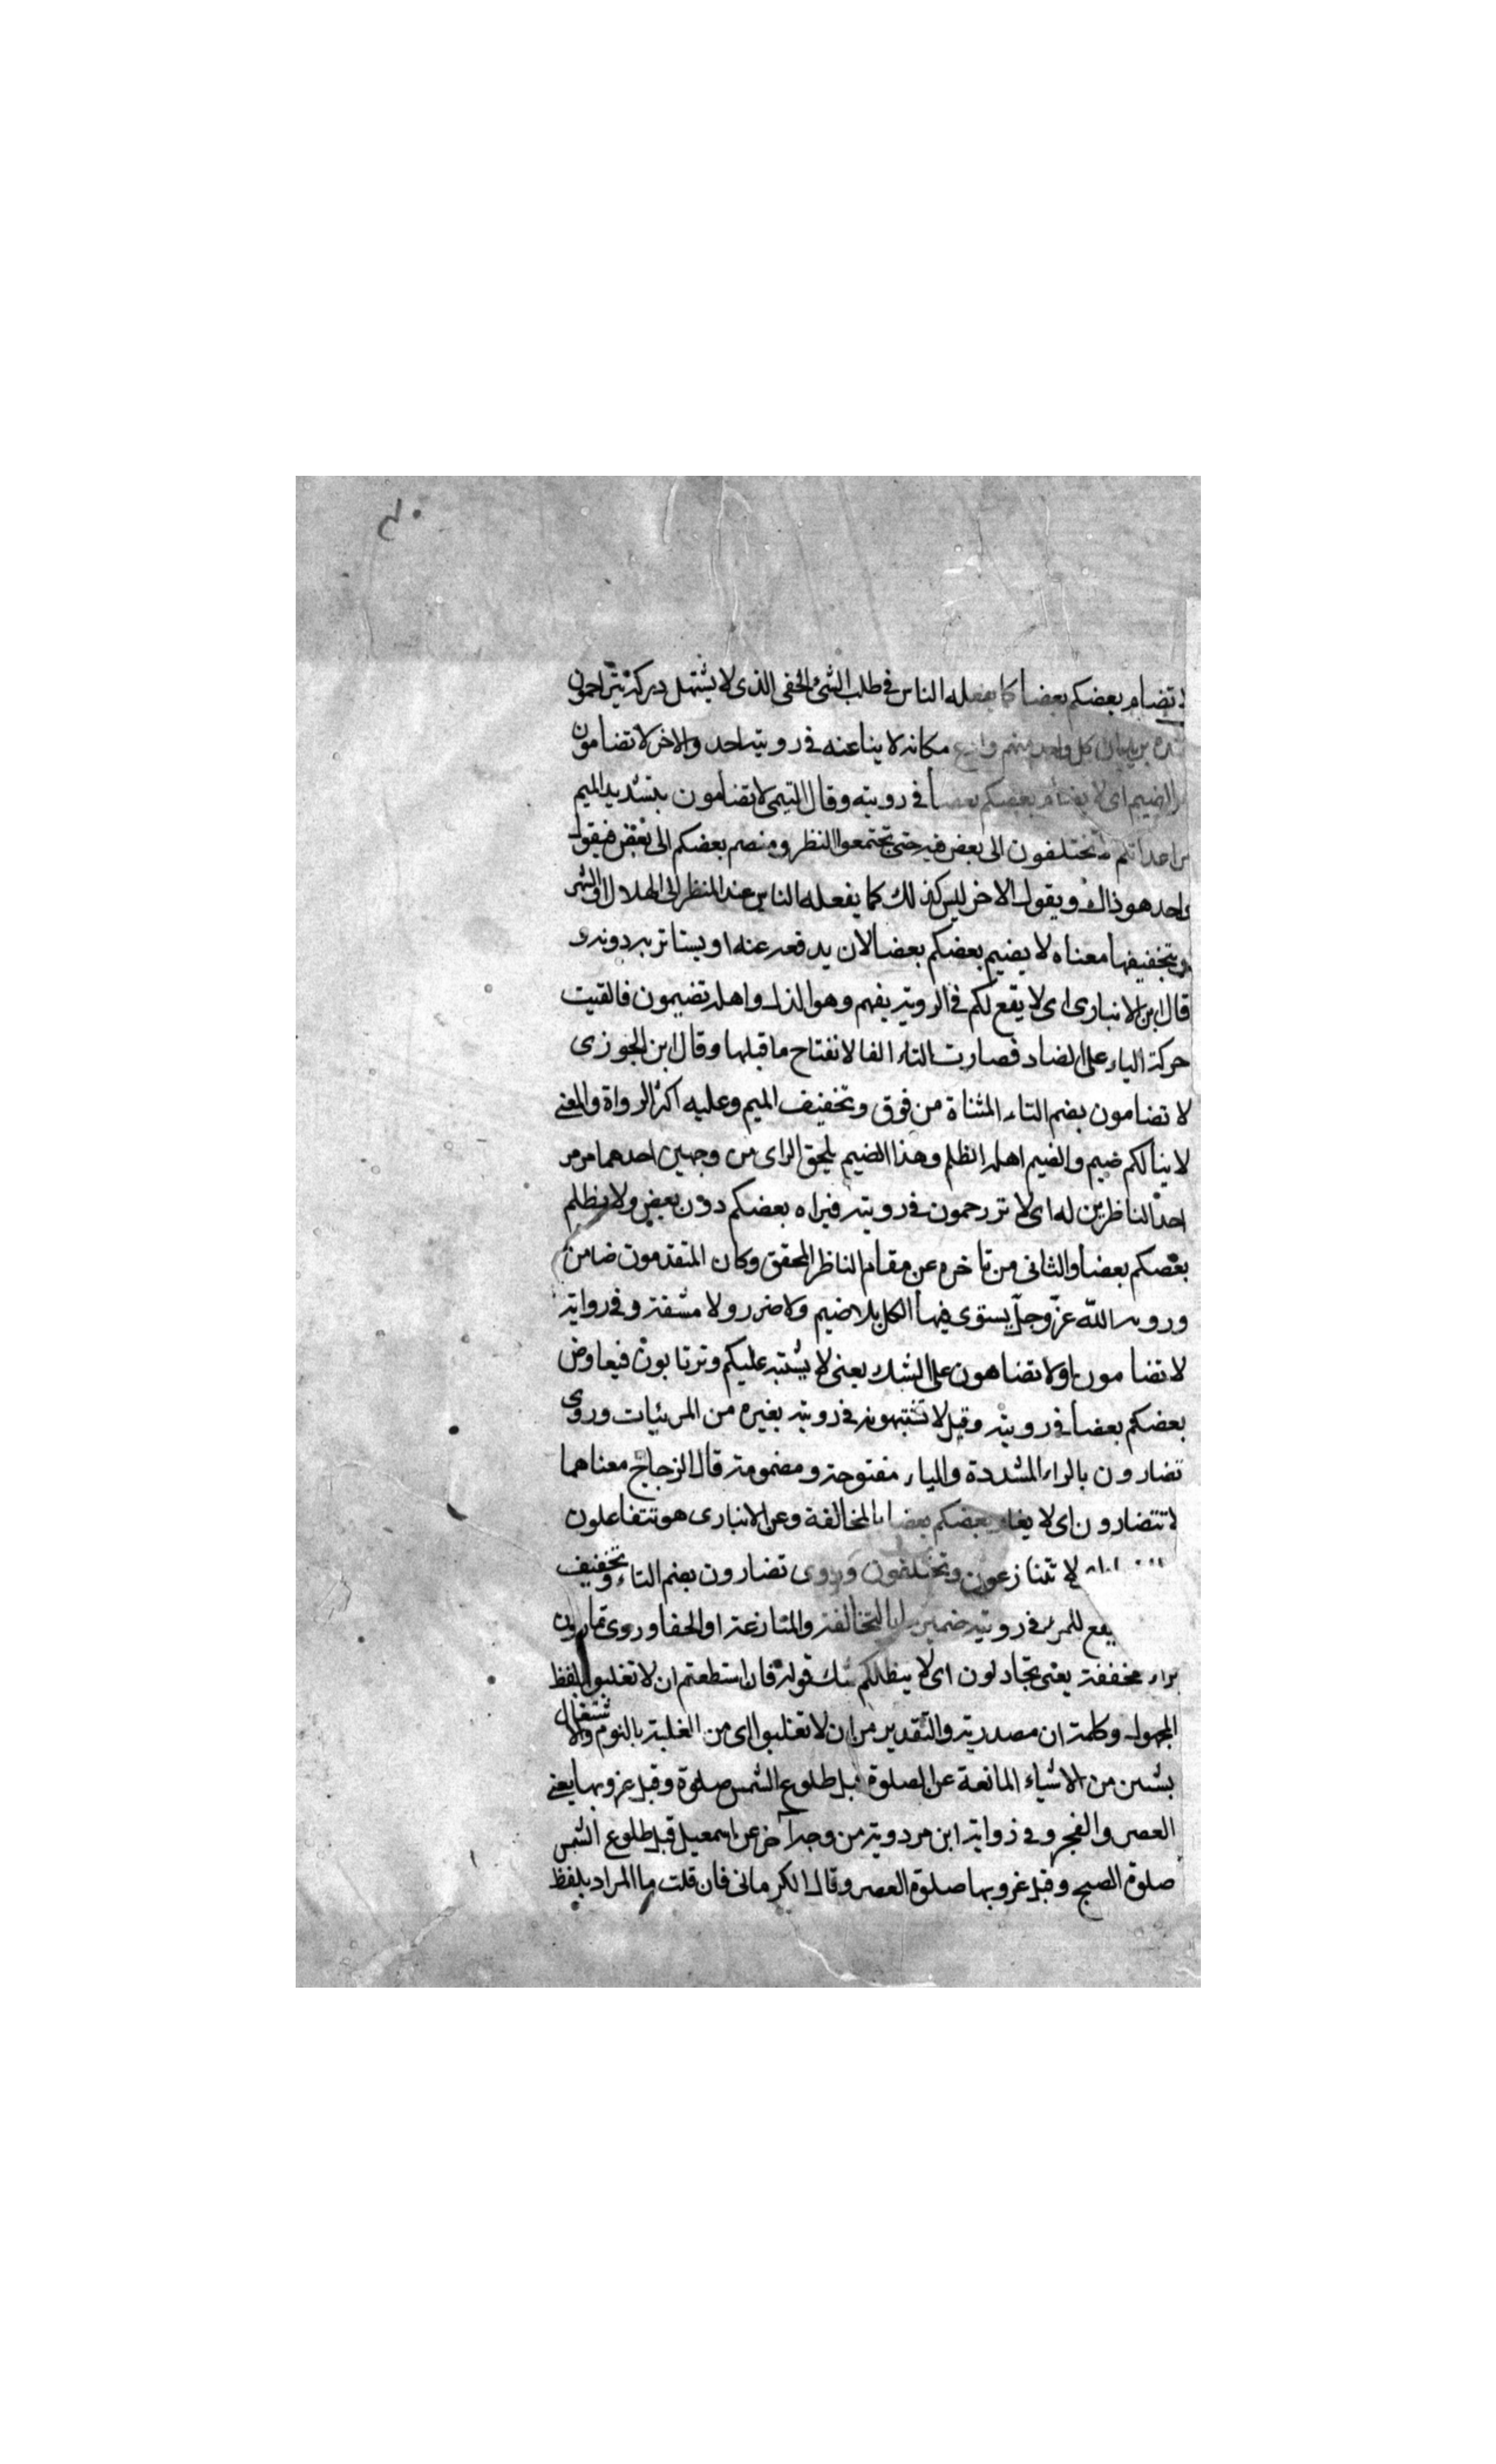 تضام بعضكم بعضا كما يفعله الناس في طلب الشئ الخفى الذى لا يشتهل دبركة يتراحمون
كل واحد منهم وازع مكانه لا يناعنه فى رويته احد والاخر لا تضامون
الضيم اى لا يضام بعضكم بعضا فى رويته وقال التيمى لا تضامون بتشديد الميم
تختلفون الى بعض فيه حتى تجتمعوا النظر ومنصم بعضكم الى بعض فيقول
واحد هو ذاك ويقول الاخر ليس كذلك كما يفعله الناس عند المنظر الى الهلال
وبتخفيفها معناه لا يضيم بعضكم بعضا لان يدفعه عنه او يستاثر به دونه و
قال ابن الانبارى اى لا يقع لكم فى الرويه يفهم وهو الذل واهله تضيمون فالقيت
حركة الياء على الضاد فصارت التاء الفا لانفتاح ما قبلها وقال ابن الجوزى
لا تضامون بضم التاء المثناة من فوق وتخفيف الميم وعليه اكثر الرواة والمعنى
لا ينالكم ضيم والضيم اهله الظلم وهذا الضيم يلحق الراى من وجهين احدهما من مر
احد الناظرين له اى لا تزرحمون فى رويته فيراه بعضكم دون بعض ولا يظلم
بعضكم بعضا والثانى من تاخره عن مقام الناظر المحقق وكان المتقدمون ضامن
ورويه الله عز وجل يستوى فيها الكل بلا ضيم ولا ضرر ولا مشقة وفى رواية
لا تضامون اولا تضاهون على الشك يعنى لا يشتبه عليكم وترتابون فيعاوض
بعضكم بعضا فى رويته وقيل لا تشتبهونه فى رويته بغيره من المرئيات وروى
تضارون بالراء المشددة والياء مفتوحة ومضمومة قال الزجاج معناهما
لا تتضارون اى لا يضار بعضكم بعضا بالمخالفة وعن الانبارى هو تتفاعلون
لا تتنازعون وتختلفون وروى تضارون بضم التاء وتخفيف
يقع للمرء فى رويته ضمير بالتخالفة والمتازعة او الخفا وروى تمارون
براء مخففة يعنى تجادلون اى لا ينظلكم شك قوله فان استطعتم ان لا تغلبوا بلفظ
المجهول وكلمة ان مصدرية والتقدير من ان لا تغلبوا اى من الغلبة بالنوم والاشتغال
بشئ من الاشياء المانعة عن الصلوة قبل طلوع الشمس صلوة وقبل غروبها يعنى
العصر والفجر وفى رواية ابن مردوية من وجه آخر عن اسمعيل قبل طلوع الشمس
صلوة الصبح وقبل غروبها صلوة العصر وقال الكرمانى فان قلت ما المراد بلفظ